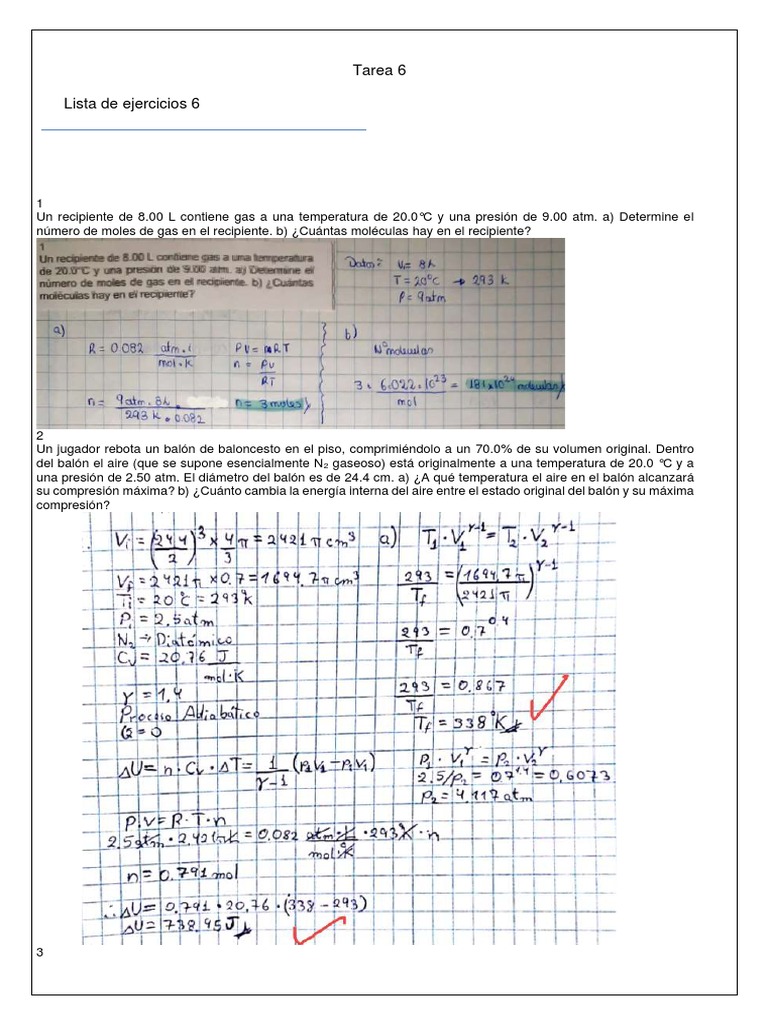 Tarea 6
Lista de ejercicios 6
1
Un recipiente de 8.00 L contiene gas a una temperatura de 20.0°C y una presión de 9.00 atm. a) Determine el
número de moles de gas en el recipiente. b) ¿Cuántas moléculas hay en el recipiente?
1
Un recipiente de 8.00 L contiene gas a una temperatura
de 20.0°C y una presión de 9.00 atm. a) Determine el
número de moles de gas en el recipiente. b) ¿Cuántas
moléculas hay en el recipiente?
Datos: V= 8L
T = 20°C → 293 k
P = 9atm
a)
R = 0.082 atm.l / mol.k
PV = nRT
n = PV / RT
n = 9atm . 8L / 293 K . 0.082
n = 3 moles
b)
N° moleculas
3 x 6.022 x 10^23 / mol = 181x10^24 moleculas
2
Un jugador rebota un balón de baloncesto en el piso, comprimiéndolo a un 70.0% de su volumen original. Dentro
del balón el aire (que se supone esencialmente N₂ gaseoso) está originalmente a una temperatura de 20.0 °C y a
una presión de 2.50 atm. El diámetro del balón es de 24.4 cm. a) ¿A qué temperatura el aire en el balón alcanzará
su compresión máxima? b) ¿Cuánto cambia la energía interna del aire entre el estado original del balón y su máxima
compresión?
Vi = (24,4/2)³ x 4/3 π = 2421 π cm³
Vf = 2421π x 0.7 = 1694.7π cm³
Ti = 20°C = 293°k
Pi = 2.5atm
N₂ → Diatómico
Cv = 20,76 J / mol·K
γ = 1,4
Proceso Adiabático
(Q = 0)
ΔU = n·Cv·ΔT = 1/(γ-1) (P₂V₂ - P₁V₁)
P.V = R·T·n
n = 0.791 mol
∴ ΔU = 0,791 · 20,76 · (338 - 293)
ΔU = 738,95J
a) T₁·V₁^γ-1 = T₂·V₂^γ-1
293/Tf = (1694,7π / 2421π)^γ-1
293/Tf = 0,7^0,4
293/Tf = 0,867
Tf = 338°K
P₁·V₁^γ = P₂·V₂^γ
2.5/P₂ = 0,7^1,4 = 0,6073
P₂ = 4,117 atm
3